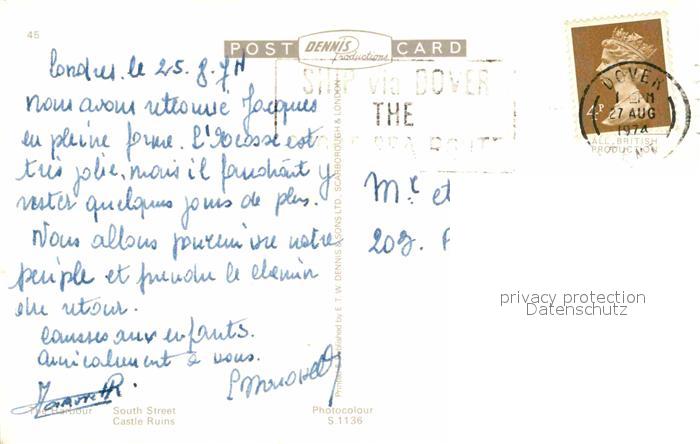 45
POST DENNIS Productions CARD
Londres. le 25. 8. 74
Nous avons retrouvé Jacques
en pleine forme. L'Ecosse est
très jolie, mais il faudrait y
rester quelques jours de plus.
Nous allons poursuivre notre
périple et prendre le chemin
du retour.
aux enfants.
Amicalement à vous.
SHIP via DOVER
THE
DOVER
27 AUG
1974
4P
ALL BRITISH
PRODUCTION
Mr et
209.
Published by E. T. W. DENNIS & SONS LTD., SCARBOROUGH & LONDON
privacy protection
Datenschutz
The Harbour South Street
Castle Ruins
Photocolour
S.1136